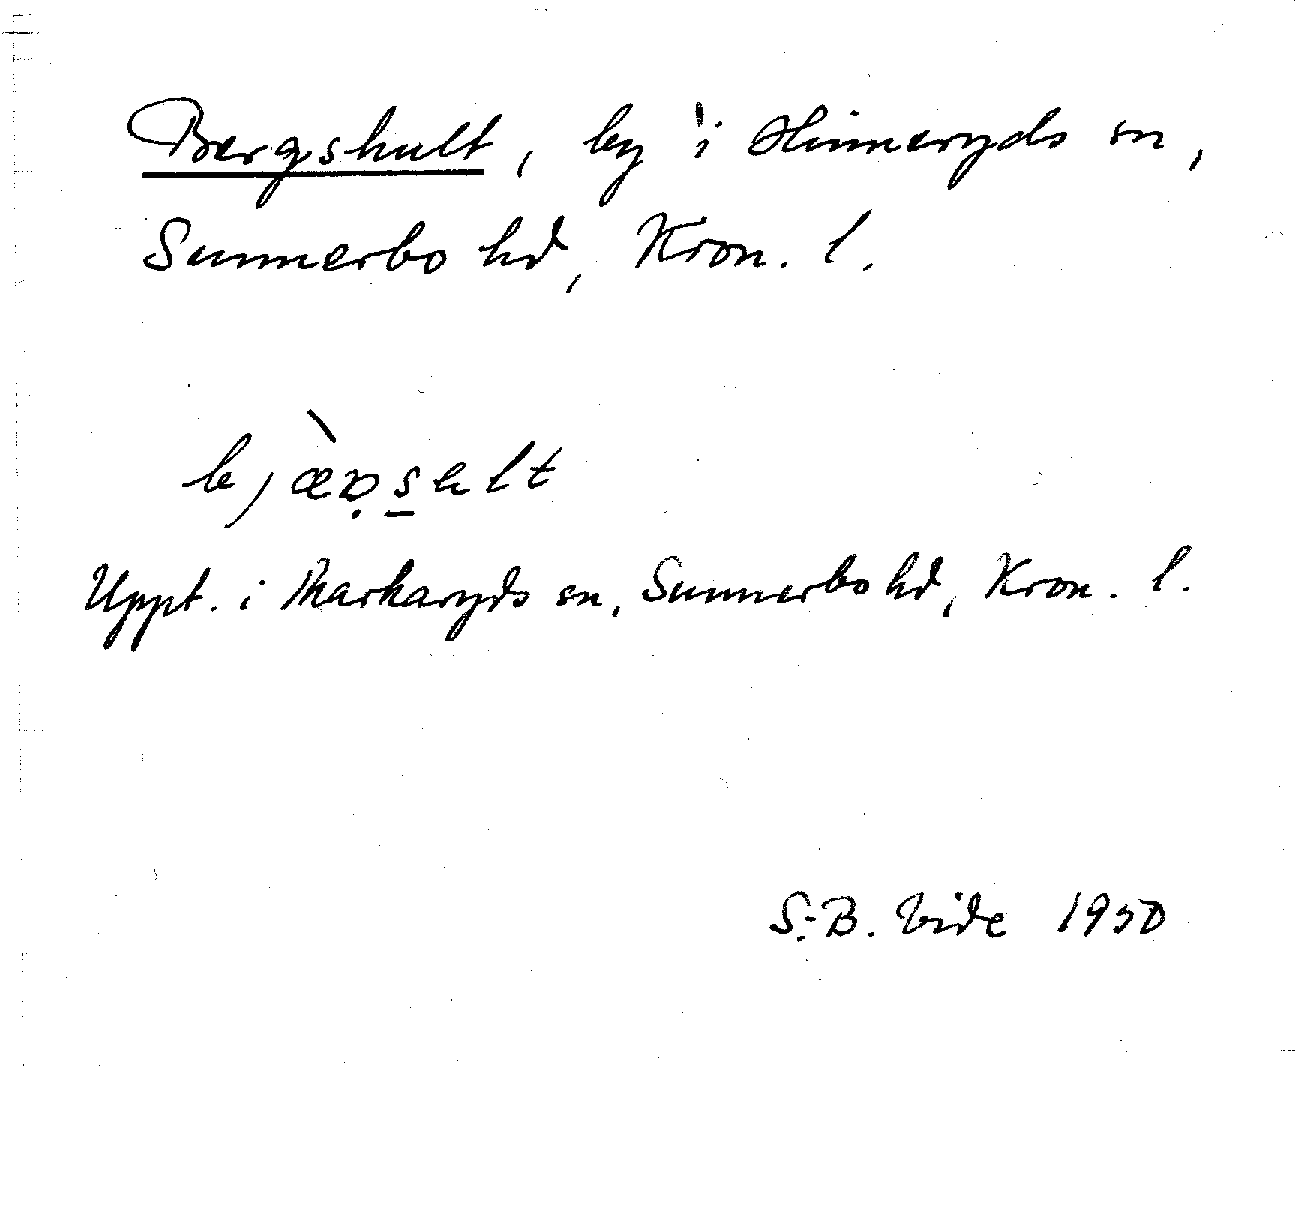 Bergshult, by i Hinneryds sn,
Sunnerbo hd, Kron. l.
Uppt. i Markaryds sn, Sunnerbo hd, Kron. l.
S.-B. Vide 1950